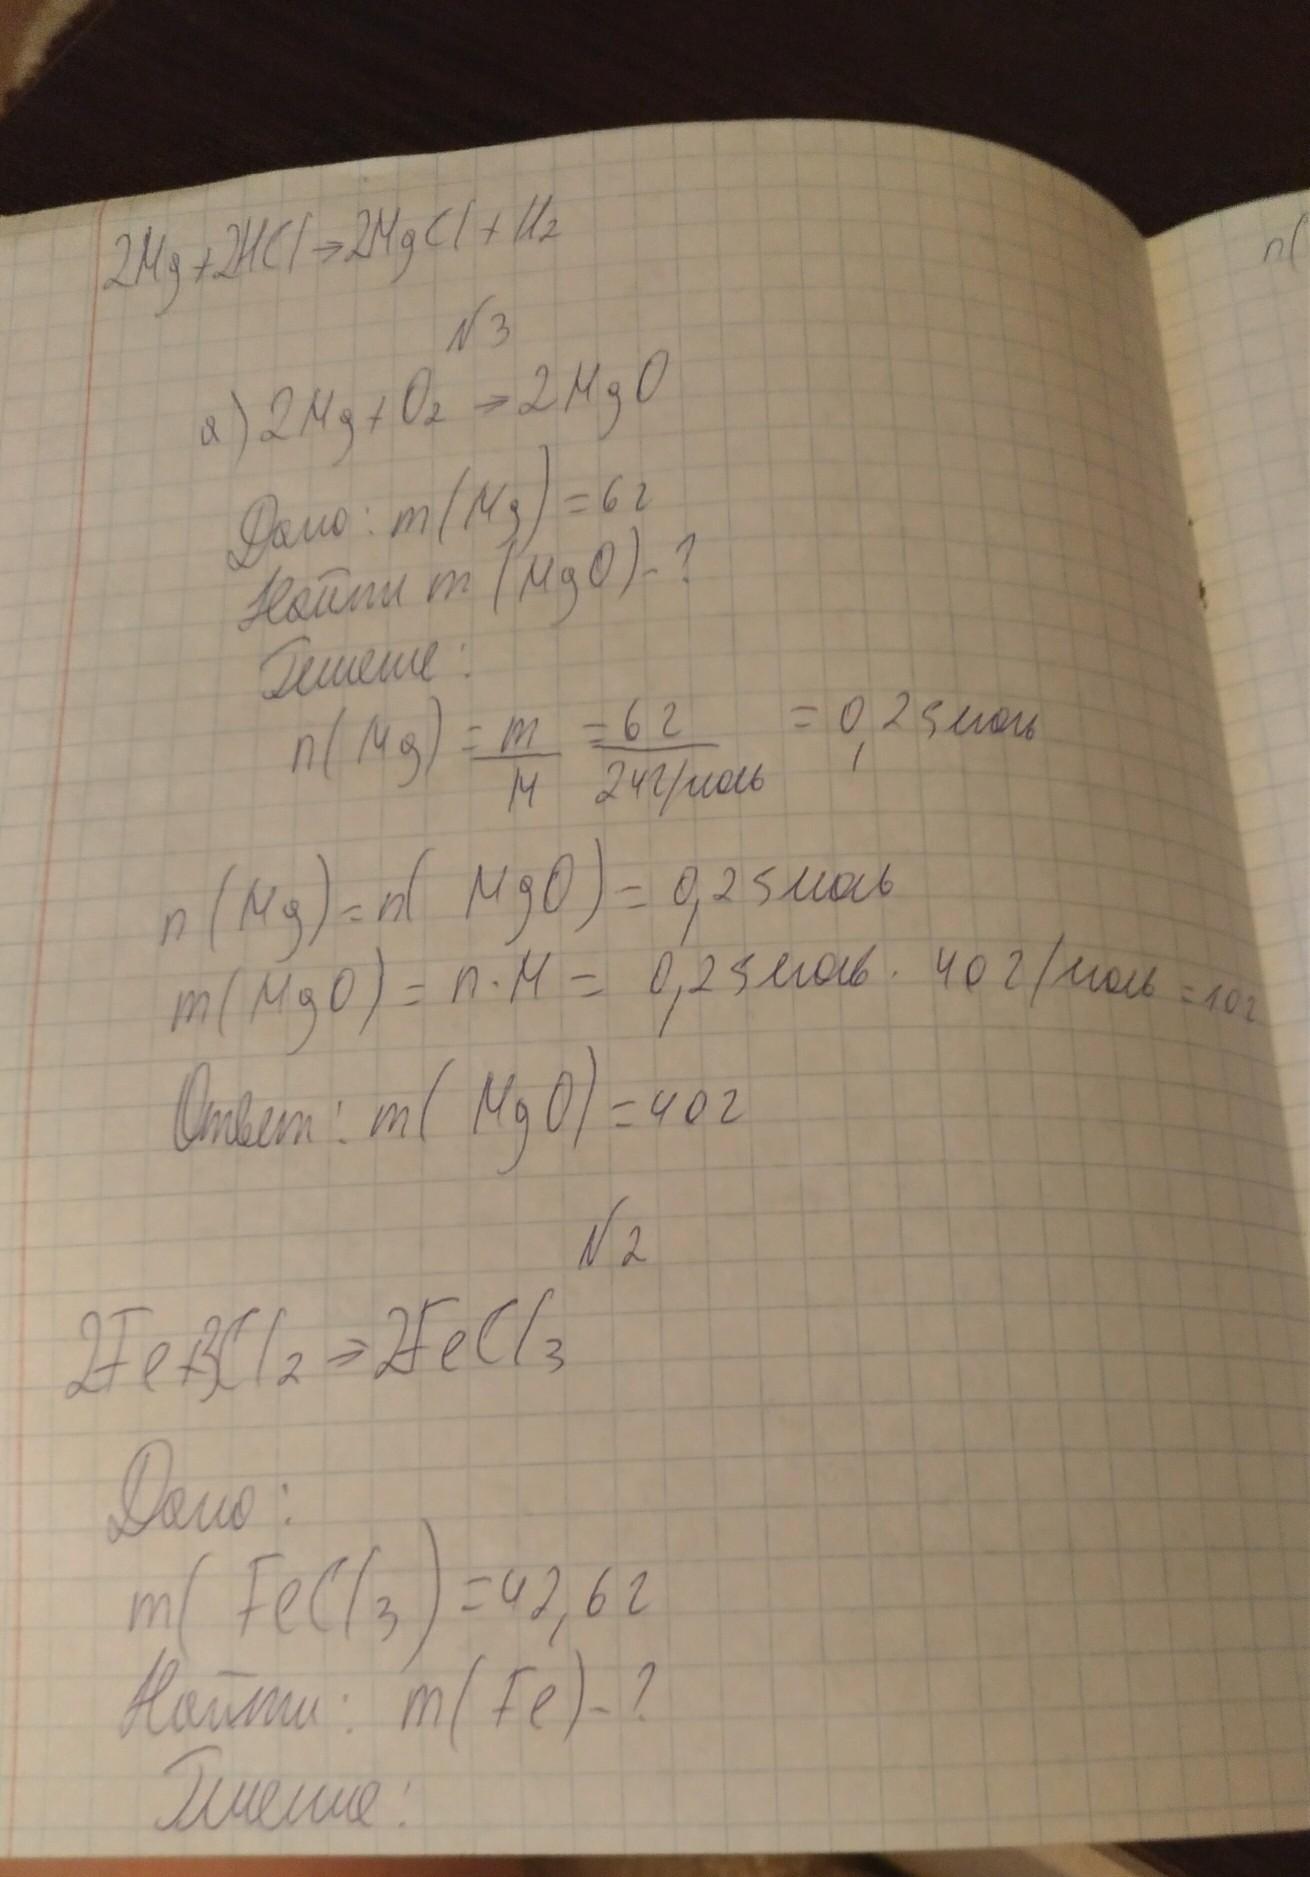 2Mg+2HCl→2MgCl+H₂
N3
а) 2Mg+O₂→2MgO
Дано: m(Mg)=6г
Найти m(MgO)-?
Решение:
n(Mg)=m/M=6г/24г/моль=0,25моль
n(Mg)=n(MgO)=0,25моль
m(MgO)=n·M=0,25моль·40г/моль=10г
Ответ: m(MgO)=40г
N2
2Fe+3Cl₂→2FeCl₃
Дано:
m(FeCl₃)=42,6г
Найти: m(Fe)-?
Решение:
n(